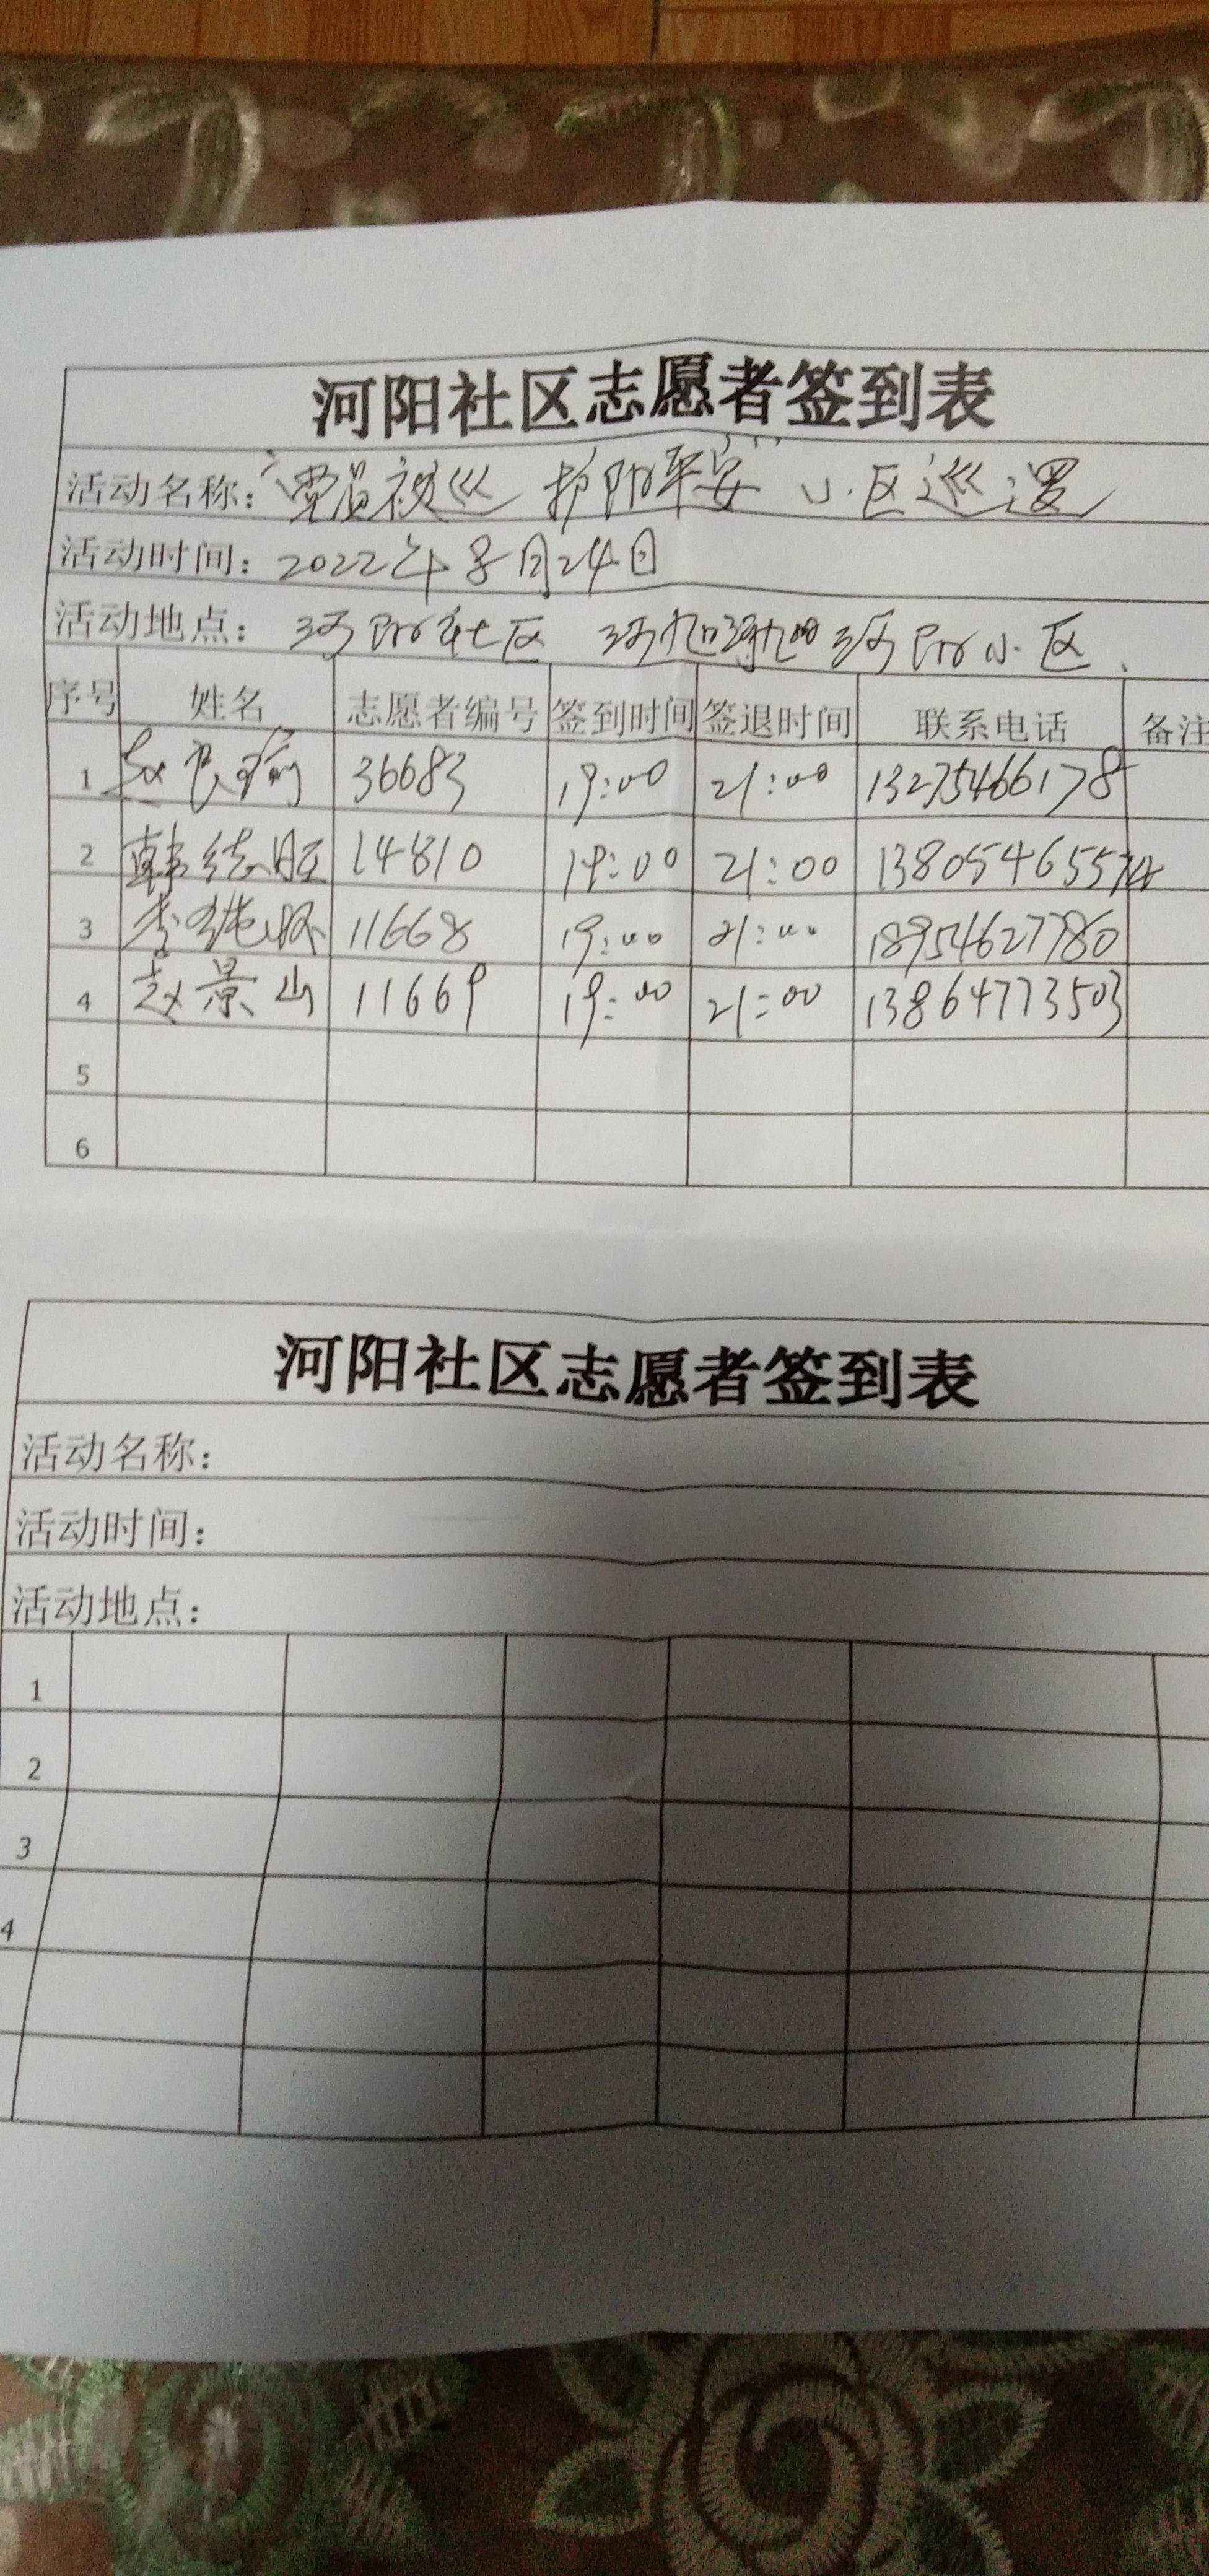 河阳社区志愿者签到表
活动名称：“党员夜巡 护阳平安” 小区巡逻
活动时间：2022年8月24日
活动地点：河阳社区 河阳小区.
序号 姓名 志愿者编号 签到时间 签退时间 联系电话 备注
1 36683 19:00 21:00 13275466178
2 韩 14810 19:00 21:00 138054655
3 李 11668 19:00 21:00 18954627780
4 赵景山 11669 19:00 21:00 13864773503
5
6
河阳社区志愿者签到表
活动名称：
活动时间：
活动地点：
1
2
3
4